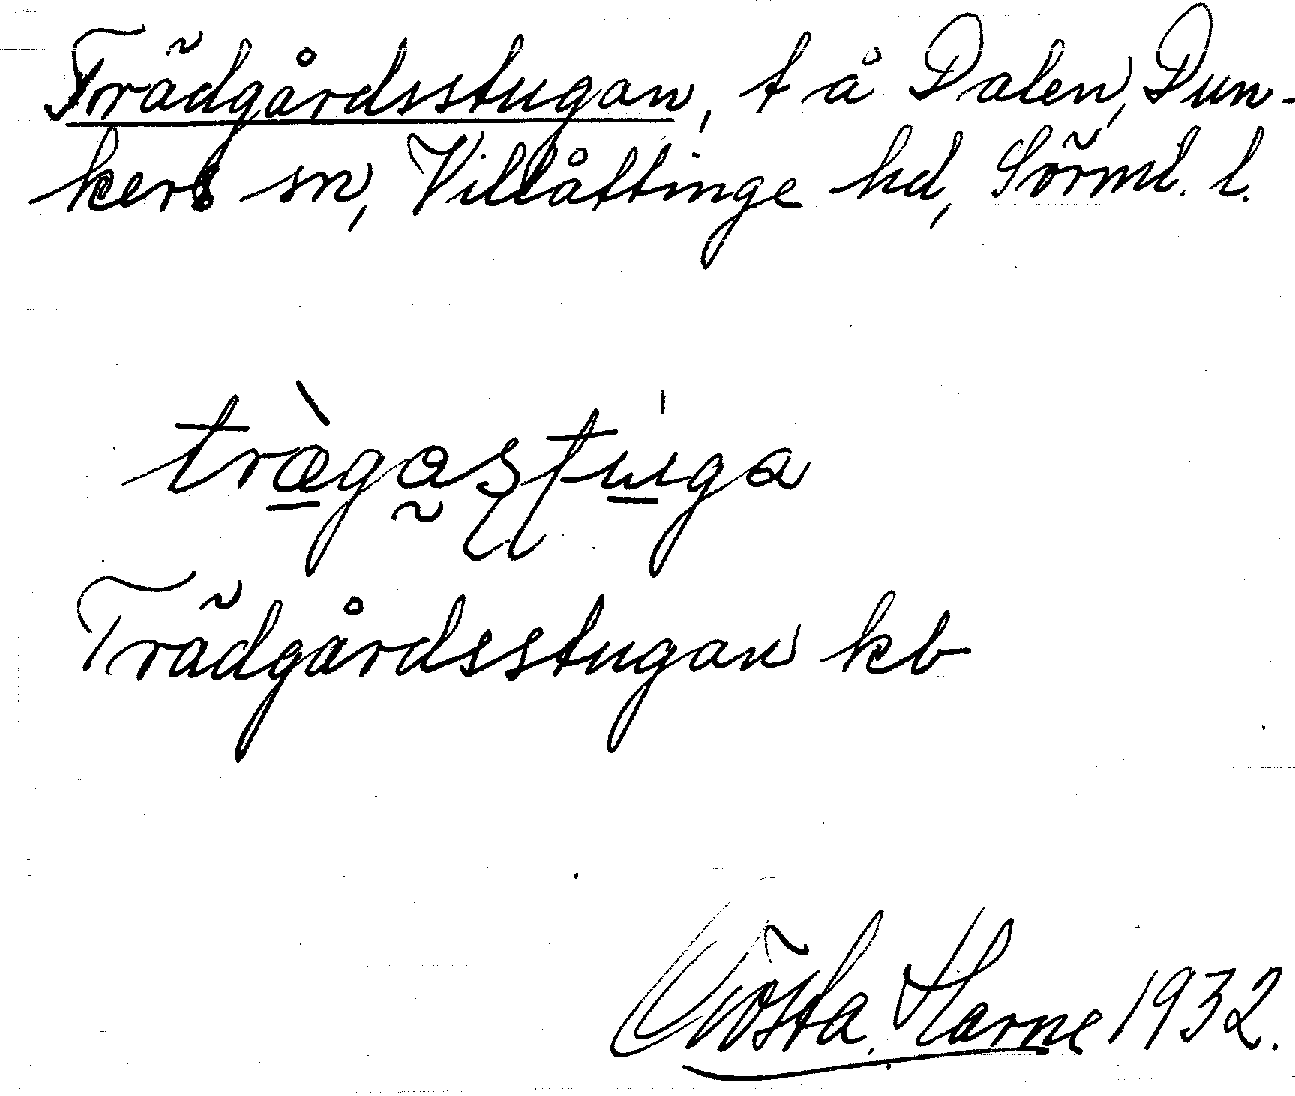 Trädgårdsstugan, t å Dalen, Dun-
kers sn, Villåttinge hd, Sörml. l.
trägastuga
Trädgårdsstugan kb
Gösta Harne 1932.